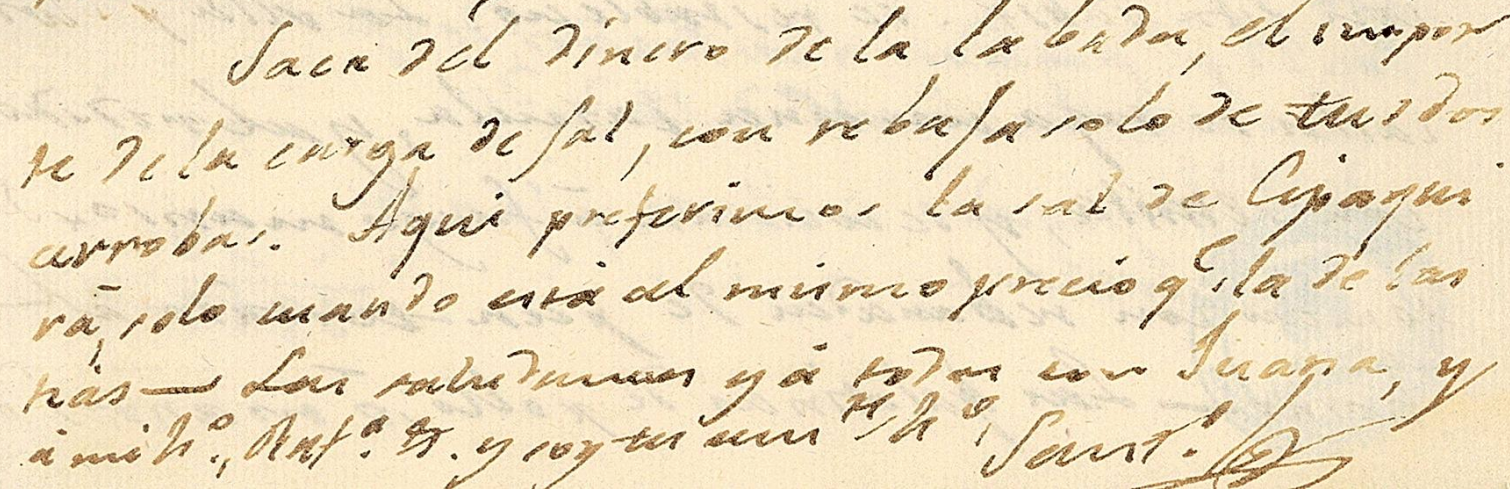 Saca del dinero de la labada, el impor
te de la carga de sal, con rebaja solo de tus dos
arrobas. Aqui preferimos la sal de Cipaqui
rá, solo cuando está al mismo precio q.e la de las
Las saludamos y á todos con Juana, y
á mi h.o, Raf.a &. y soy tu am.te h.o,
Sant.o